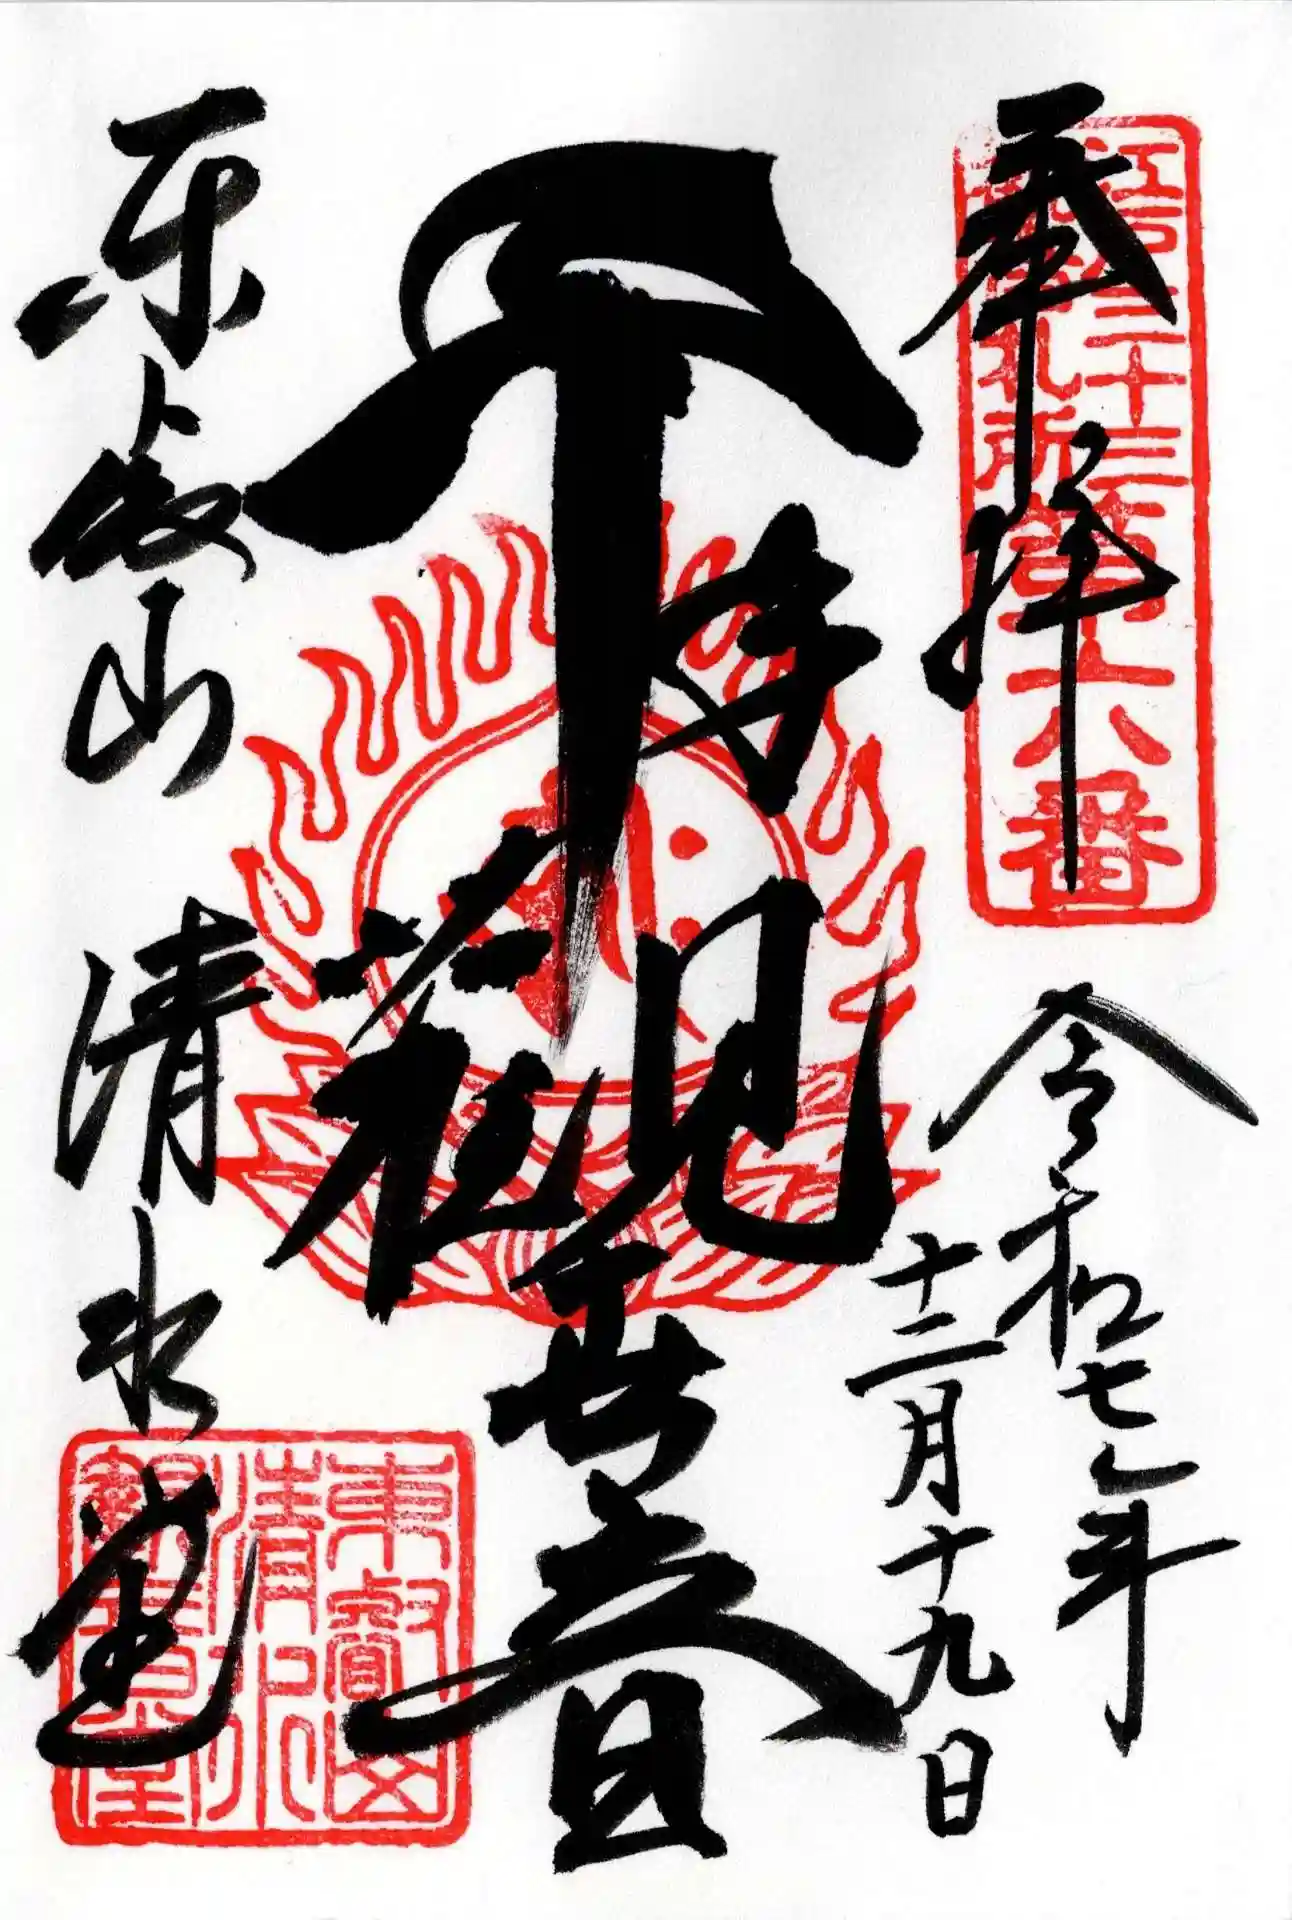 奉拝
江戸三十三
観音札所
第六番
令和七年
十二月十九日
千手観世音
東叡山 清水堂
東叡山
清水
観音堂